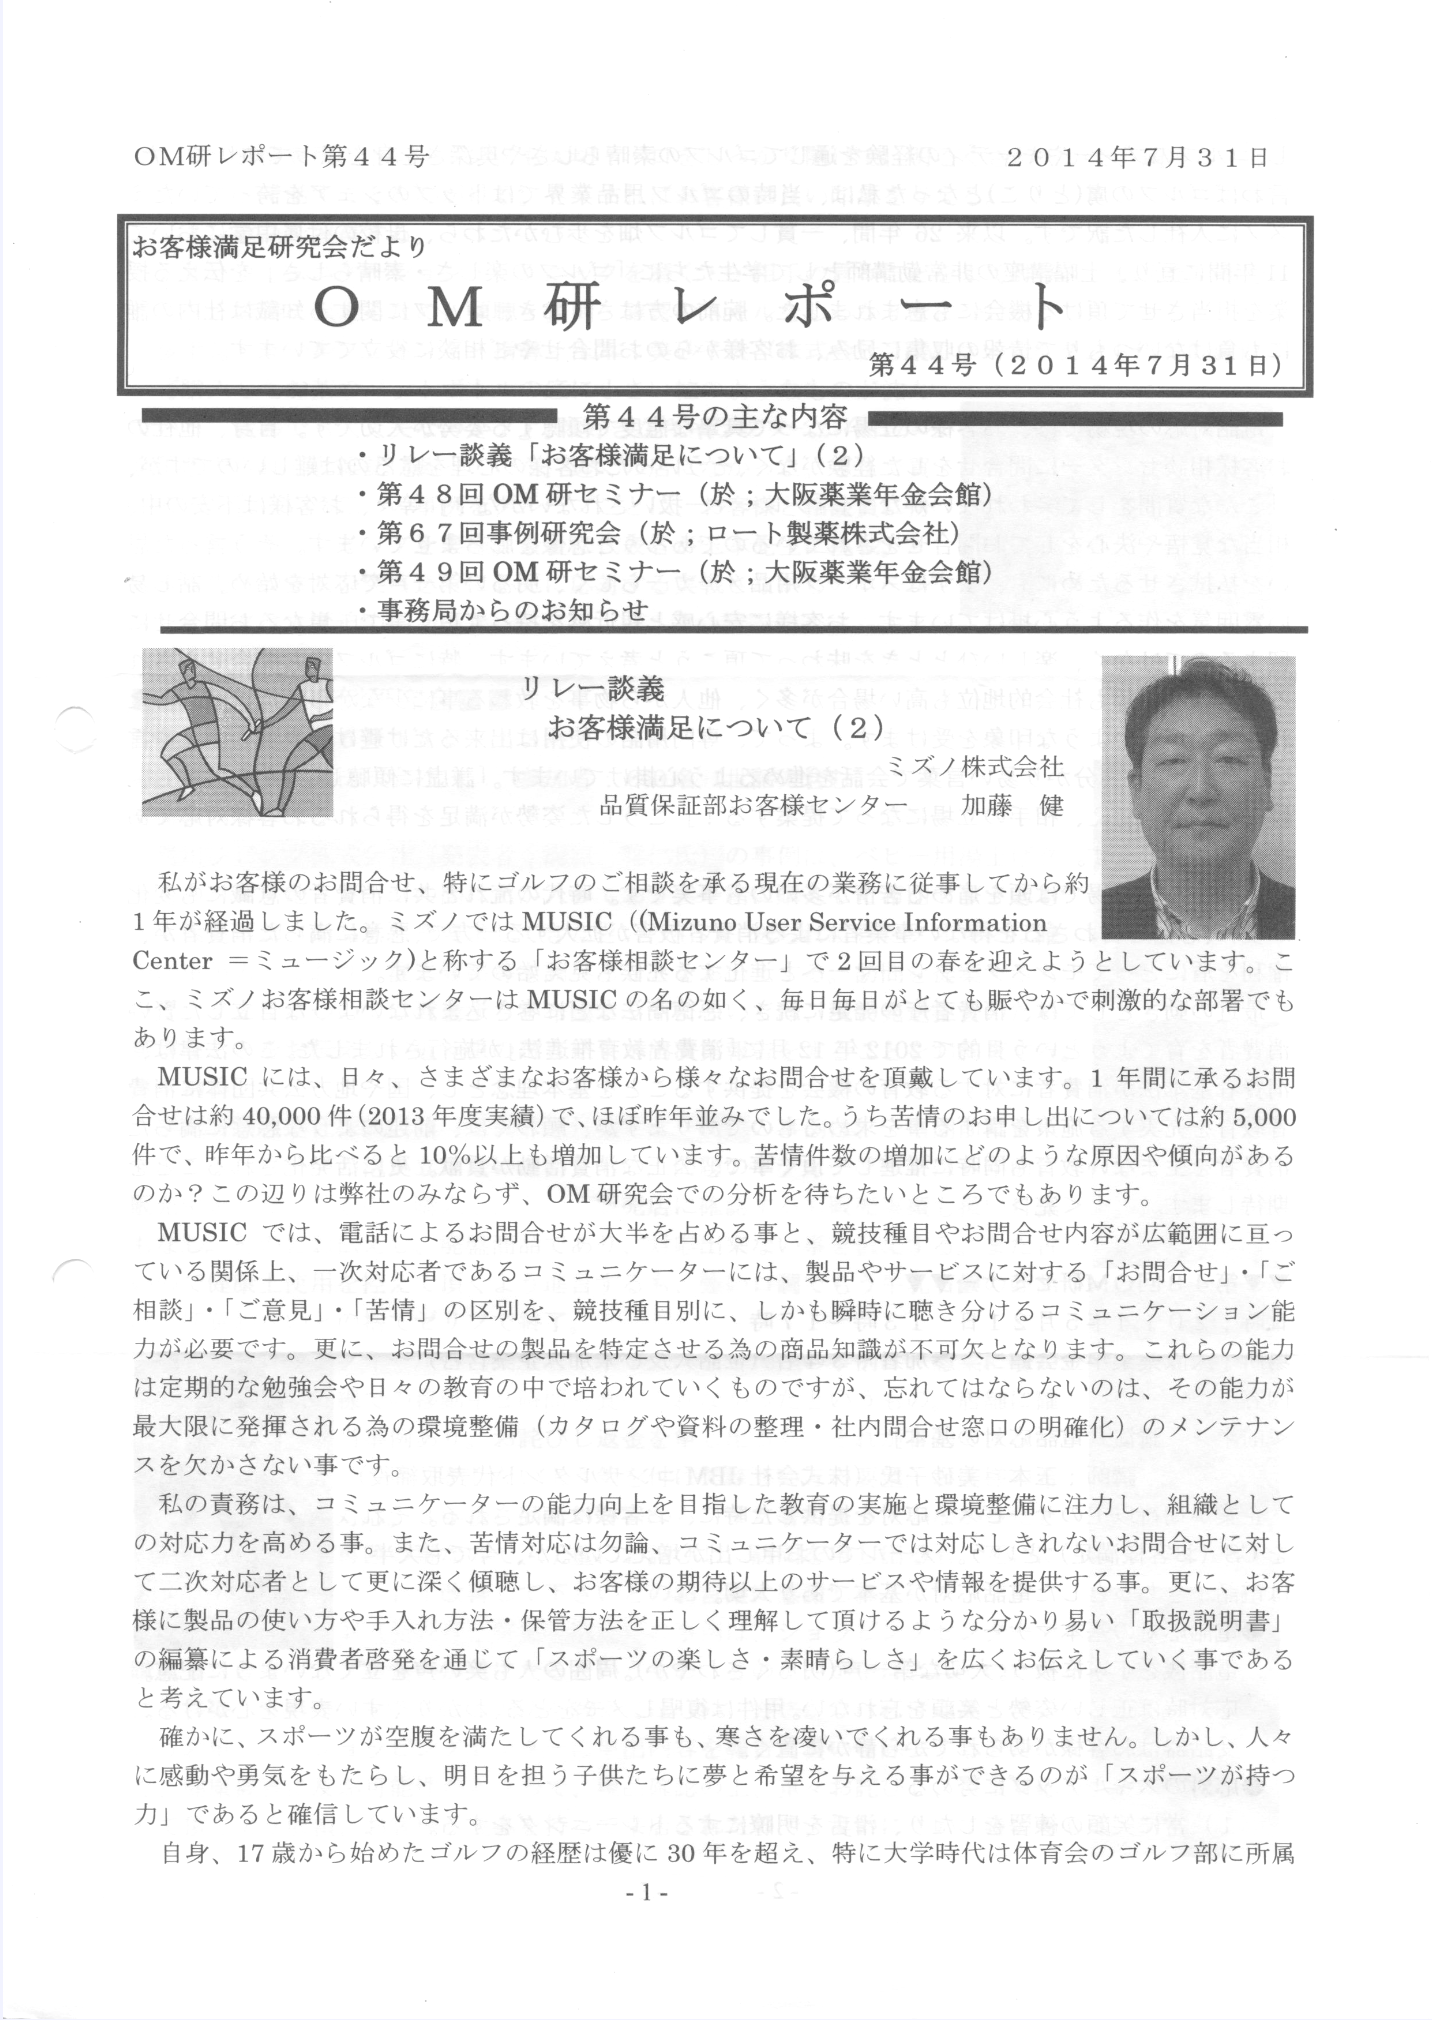 OM研レポート第44号　2014年7月31日
お客様満足研究会だより
OM研レポート
第44号（2014年7月31日）
第44号の主な内容
・リレー談義「お客様満足について」（2）
・第48回OM研セミナー（於；大阪薬業年金会館）
・第67回事例研究会（於；ロート製薬株式会社）
・第49回OM研セミナー（於；大阪薬業年金会館）
・事務局からのお知らせ
リレー談義
お客様満足について（2）
ミズノ株式会社
品質保証部お客様センター　加藤　健
私がお客様のお問合せ、特にゴルフのご相談を承る現在の業務に従事してから約
1年が経過しました。ミズノではMUSIC（(Mizuno User Service Information
Center ＝ミュージック)と称する「お客様相談センター」で2回目の春を迎えようとしています。こ
こ、ミズノお客様相談センターはMUSICの名の如く、毎日毎日がとても賑やかで刺激的な部署でも
あります。
MUSICには、日々、さまざまなお客様から様々なお問合せを頂戴しています。1年間に承るお問
合せは約40,000件（2013年度実績）で、ほぼ昨年並みでした。うち苦情のお申し出については約5,000
件で、昨年から比べると10%以上も増加しています。苦情件数の増加にどのような原因や傾向がある
のか？この辺りは弊社のみならず、OM研究会での分析を待ちたいところでもあります。
MUSICでは、電話によるお問合せが大半を占める事と、競技種目やお問合せ内容が広範囲に亘っ
ている関係上、一次対応者であるコミュニケーターには、製品やサービスに対する「お問合せ」・「ご
相談」・「ご意見」・「苦情」の区別を、競技種目別に、しかも瞬時に聴き分けるコミュニケーション能
力が必要です。更に、お問合せの製品を特定させる為の商品知識が不可欠となります。これらの能力
は定期的な勉強会や日々の教育の中で培われていくものですが、忘れてはならないのは、その能力が
最大限に発揮される為の環境整備（カタログや資料の整理・社内問合せ窓口の明確化）のメンテナン
スを欠かさない事です。
私の責務は、コミュニケーターの能力向上を目指した教育の実施と環境整備に注力し、組織として
の対応力を高める事。また、苦情対応は勿論、コミュニケーターでは対応しきれないお問合せに対し
て二次対応者として更に深く傾聴し、お客様の期待以上のサービスや情報を提供する事。更に、お客
様に製品の使い方や手入れ方法・保管方法を正しく理解して頂けるような分かり易い「取扱説明書」
の編纂による消費者啓発を通じて「スポーツの楽しさ・素晴らしさ」を広くお伝えしていく事である
と考えています。
確かに、スポーツが空腹を満たしてくれる事も、寒さを凌いでくれる事もありません。しかし、人々
に感動や勇気をもたらし、明日を担う子供たちに夢と希望を与える事ができるのが「スポーツが持つ
力」であると確信しています。
自身、17歳から始めたゴルフの経歴は優に30年を超え、特に大学時代は体育会のゴルフ部に所属
- 1 -